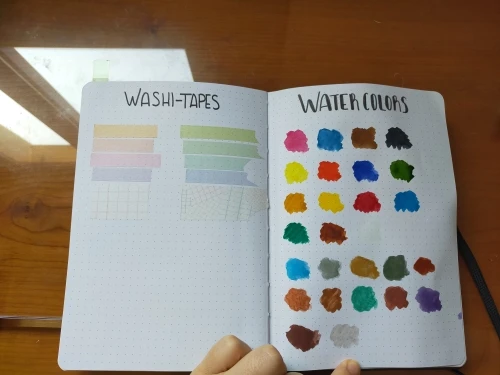 WASHI-TAPES
WATER COLORS